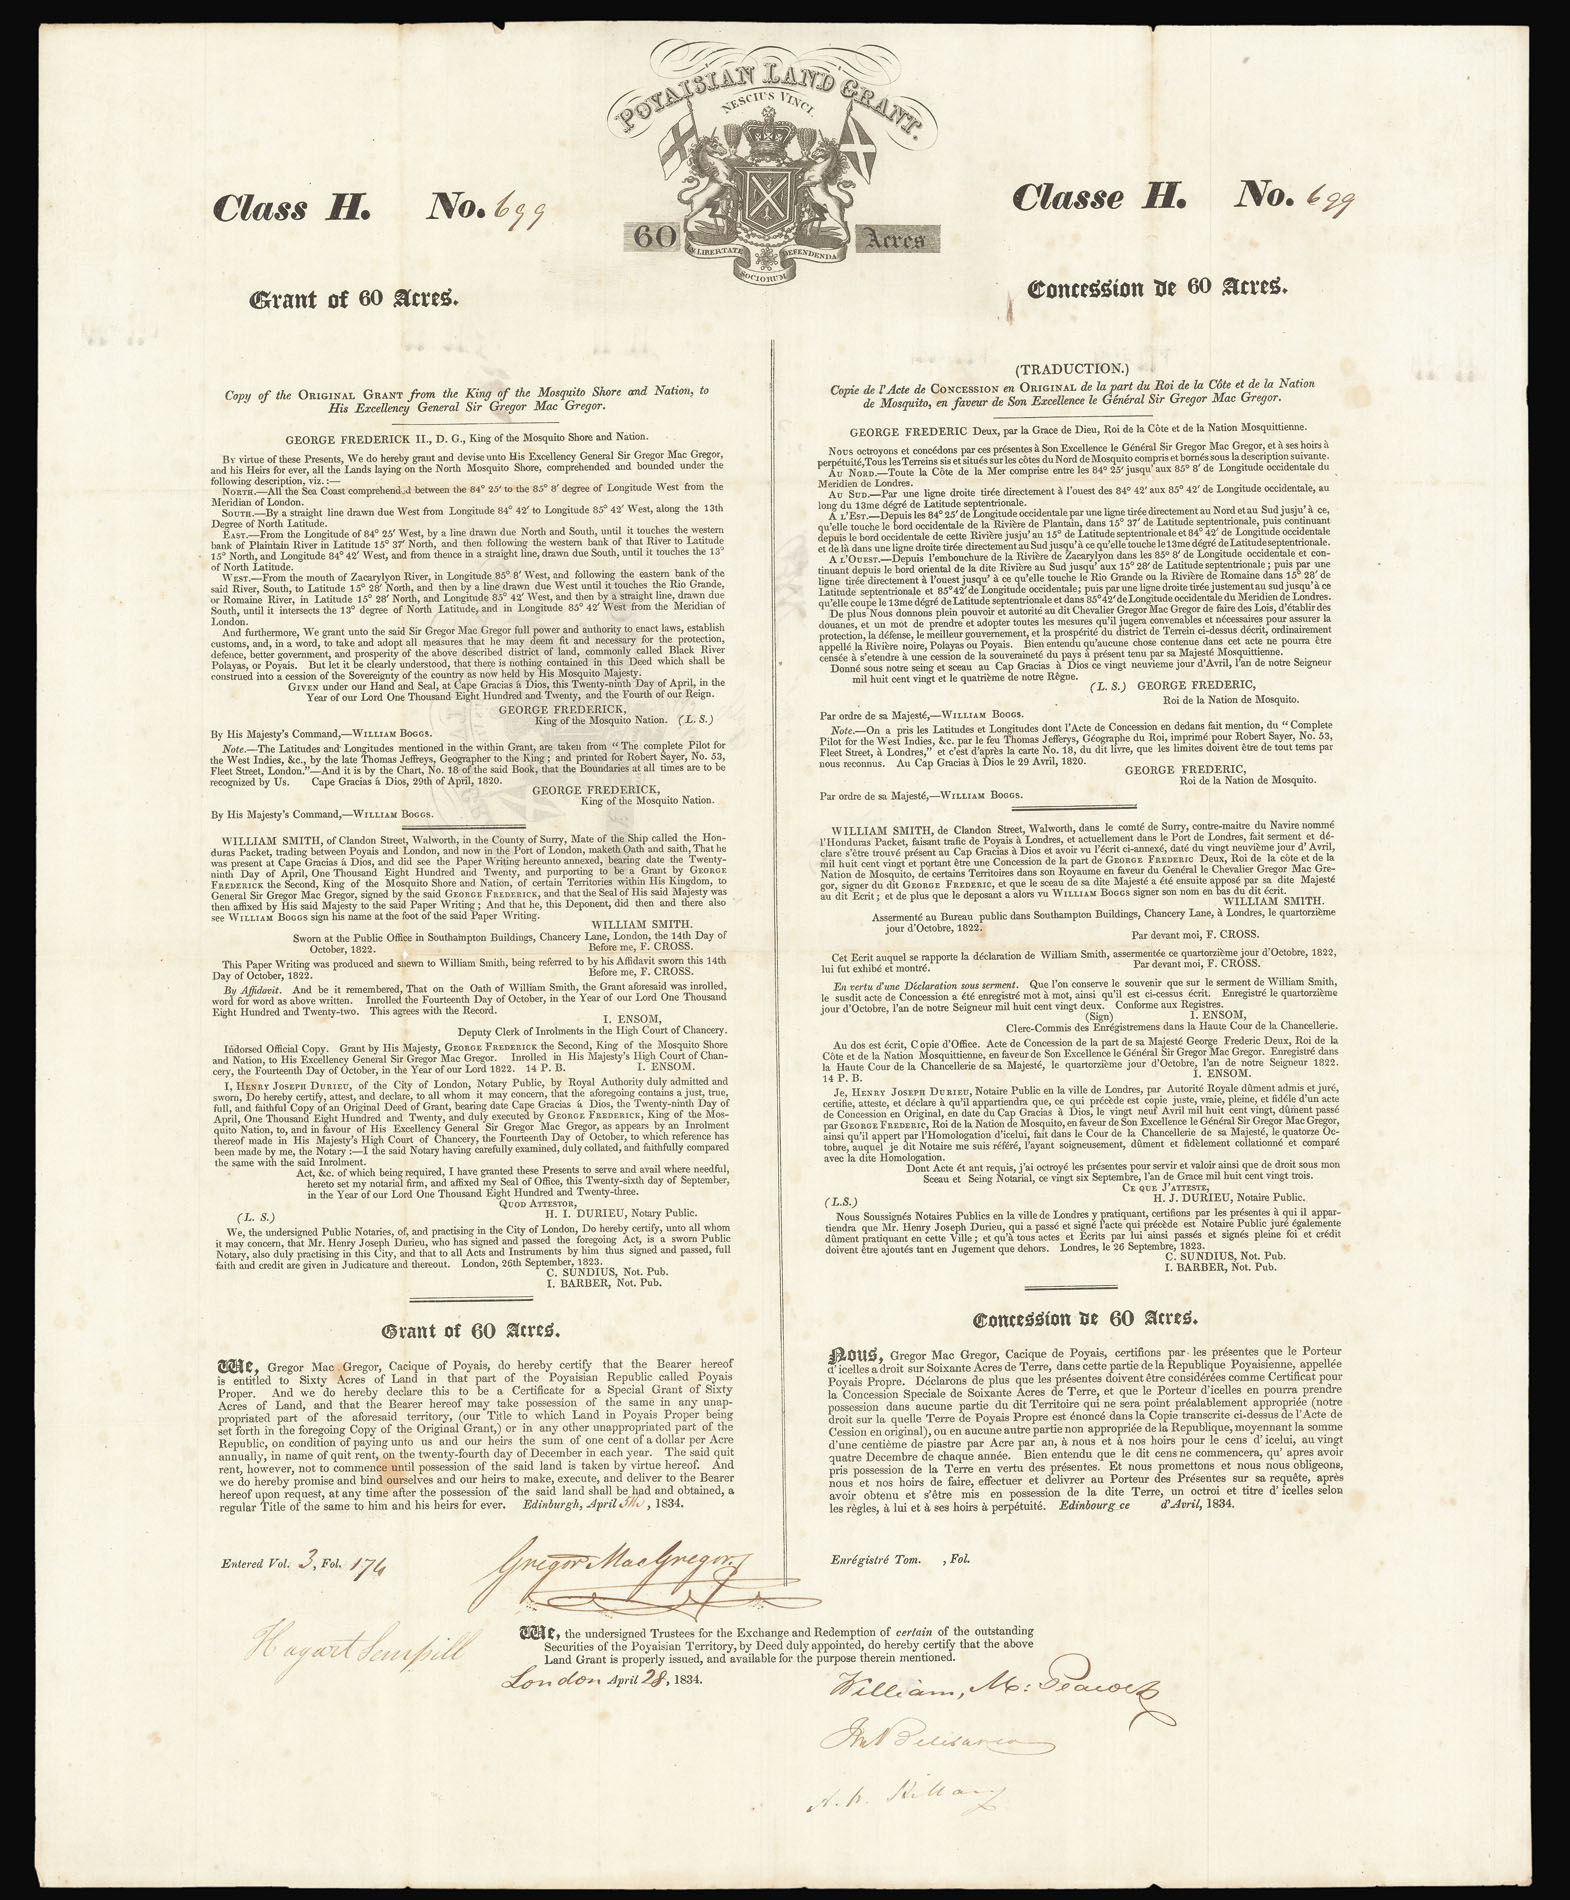 POYAISIAN LAND GRANT.
NESCIUS VINCI.
60 Acres
LIBERTATE
DEFENDENDA
SOCIORUM
Class H. No. 699
Grant of 60 Acres.
Copy of the ORIGINAL GRANT from the King of the Mosquito Shore and Nation, to
His Excellency General Sir Gregor Mac Gregor.
GEORGE FREDERICK II., D. G., King of the Mosquito Shore and Nation.
BY virtue of these Presents, We do hereby grant and devise unto His Excellency General Sir Gregor Mac Gregor,
and his Heirs for ever, all the Lands laying on the North Mosquito Shore, comprehended and bounded under the
following description, viz. :—
NORTH.—All the Sea Coast comprehended between the 84° 25′ to the 85° 8′ degree of Longitude West from the
Meridian of London.
SOUTH.—By a straight line drawn due West from Longitude 84° 42′ to Longitude 85° 42′ West, along the 13th
Degree of North Latitude.
EAST.—From the Longitude of 84° 25′ West, by a line drawn due North and South, until it touches the western
bank of Plaintain River in Latitude 15° 37′ North, and then following the western bank of that River to Latitude
15° North, and Longitude 84° 42′ West, and from thence in a straight line, drawn due South, until it touches the 13°
of North Latitude.
WEST.—From the mouth of Zacarylyon River, in Longitude 85° 8′ West, and following the eastern bank of the
said River, South, to Latitude 15° 28′ North, and then by a line drawn due West until it touches the Rio Grande,
or Romaine River, in Latitude 15° 28′ North, and Longitude 85° 42′ West, and then by a straight line, drawn due
South, until it intersects the 13° degree of North Latitude, and in Longitude 85° 42′ West from the Meridian of
London.
And furthermore, We grant unto the said Sir Gregor Mac Gregor full power and authority to enact laws, establish
customs, and, in a word, to take and adopt all measures that he may deem fit and necessary for the protection,
defence, better government, and prosperity of the above described district of land, commonly called Black River
Polayas, or Poyais. But let it be clearly understood, that there is nothing contained in this Deed which shall be
construed into a cession of the Sovereignty of the country as now held by His Mosquito Majesty.
GIVEN under our Hand and Seal, at Cape Gracias á Dios, this Twenty-ninth Day of April, in the
Year of our Lord One Thousand Eight Hundred and Twenty, and the Fourth of our Reign.
GEORGE FREDERICK,
King of the Mosquito Nation. (L. S.)
By His Majesty's Command,—WILLIAM BOGGS.
Note.—The Latitudes and Longitudes mentioned in the within Grant, are taken from "The complete Pilot for
the West Indies, &c., by the late Thomas Jeffreys, Geographer to the King; and printed for Robert Sayer, No. 53,
Fleet Street, London."—And it is by the Chart, No. 18 of the said Book, that the Boundaries at all times are to be
recognized by Us. Cape Gracias á Dios, 29th of April, 1820.
GEORGE FREDERICK,
King of the Mosquito Nation.
By His Majesty's Command,—WILLIAM BOGGS.
WILLIAM SMITH, of Clandon Street, Walworth, in the County of Surry, Mate of the Ship called the Hon-
duras Packet, trading between Poyais and London, and now in the Port of London, maketh Oath and saith, That he
was present at Cape Gracias á Dios, and did see the Paper Writing hereunto annexed, bearing date the Twenty-
ninth Day of April, One Thousand Eight Hundred and Twenty, and purporting to be a Grant by GEORGE
FREDERICK the Second, King of the Mosquito Shore and Nation, of certain Territories within His Kingdom, to
General Sir Gregor Mac Gregor, signed by the said GEORGE FREDERICK, and that the Seal of His said Majesty was
then affixed by His said Majesty to the said Paper Writing; And that he, this Deponent, did then and there also
see WILLIAM BOGGS sign his name at the foot of the said Paper Writing.
WILLIAM SMITH.
Sworn at the Public Office in Southampton Buildings, Chancery Lane, London, the 14th Day of
October, 1822. Before me, F. CROSS.
This Paper Writing was produced and shewn to William Smith, being referred to by his Affidavit sworn this 14th
Day of October, 1822. Before me, F. CROSS.
By Affidavit. And be it remembered, That on the Oath of William Smith, the Grant aforesaid was inrolled,
word for word as above written. Inrolled the Fourteenth Day of October, in the Year of our Lord One Thousand
Eight Hundred and Twenty-two. This agrees with the Record.
I. ENSOM,
Deputy Clerk of Inrolments in the High Court of Chancery.
Indorsed Official Copy. Grant by His Majesty, GEORGE FREDERICK the Second, King of the Mosquito Shore
and Nation, to His Excellency General Sir Gregor Mac Gregor. Inrolled in His Majesty's High Court of Chan-
cery, the Fourteenth Day of October, in the Year of our Lord 1822. 14 P. B. I. ENSOM.
I, HENRY JOSEPH DURIEU, of the City of London, Notary Public, by Royal Authority duly admitted and
sworn, Do hereby certify, attest, and declare, to all whom it may concern, that the aforegoing contains a just, true,
full, and faithful Copy of an Original Deed of Grant, bearing date Cape Gracias á Dios, the Twenty-ninth Day of
April, One Thousand Eight Hundred and Twenty, and duly executed by GEORGE FREDERICK, King of the Mos-
quito Nation, to, and in favour of His Excellency General Sir Gregor Mac Gregor, as appears by an Inrolment
thereof made in His Majesty's High Court of Chancery, the Fourteenth Day of October, to which reference has
been made by me, the Notary :—I the said Notary having carefully examined, duly collated, and faithfully compared
the same with the said Inrolment.
Act, &c. of which being required, I have granted these Presents to serve and avail where needful,
hereto set my notarial firm, and affixed my Seal of Office, this Twenty-sixth day of September,
in the Year of our Lord One Thousand Eight Hundred and Twenty-three.
QUOD ATTESTOR,
(L. S.) H. I. DURIEU, Notary Public.
We, the undersigned Public Notaries, of, and practising in the City of London, Do hereby certify, unto all whom
it may concern, that Mr. Henry Joseph Durieu, who has signed and passed the foregoing Act, is a sworn Public
Notary, also duly practising in this City, and that to all Acts and Instruments by him thus signed and passed, full
faith and credit are given in Judicature and thereout. London, 26th September, 1823.
C. SUNDIUS, Not. Pub.
I. BARBER, Not. Pub.
Grant of 60 Acres.
We, Gregor Mac Gregor, Cacique of Poyais, do hereby certify that the Bearer hereof
is entitled to Sixty Acres of Land in that part of the Poyaisian Republic called Poyais
Proper. And we do hereby declare this to be a Certificate for a Special Grant of Sixty
Acres of Land, and that the Bearer hereof may take possession of the same in any unap-
propriated part of the aforesaid territory, (our Title to which Land in Poyais Proper being
set forth in the foregoing Copy of the Original Grant,) or in any other unappropriated part of the
Republic, on condition of paying unto us and our heirs the sum of one cent of a dollar per Acre
annually, in name of quit rent, on the twenty-fourth day of December in each year. The said quit
rent, however, not to commence until possession of the said land is taken by virtue hereof. And
we do hereby promise and bind ourselves and our heirs to make, execute, and deliver to the Bearer
hereof upon request, at any time after the possession of the said land shall be had and obtained, a
regular Title of the same to him and his heirs for ever. Edinburgh, April 5th, 1834.
Entered Vol. 3, Fol. 174
Gregor MacGregor
Hagart Sempill
Classe H. No. 699
Concession de 60 Acres.
(TRADUCTION.)
Copie de l'Acte de CONCESSION en ORIGINAL de la part du Roi de la Côte et de la Nation
de Mosquito, en faveur de Son Excellence le Général Sir Gregor Mac Gregor.
GEORGE FREDERIC Deux, par la Grace de Dieu, Roi de la Côte et de la Nation Mosquittienne.
NOUS octroyons et concédons par ces présentes à Son Excellence le Général Sir Gregor Mac Gregor, et à ses hoirs à
perpétuité,Tous les Terreins sis et situés sur les côtes du Nord de Mosquito compris et bornés sous la description suivante.
AU NORD.—Toute la Côte de la Mer comprise entre les 84° 25′ jusqu' aux 85° 8′ de Longitude occidentale du
Meridien de Londres.
AU SUD.—Par une ligne droite tirée directement à l'ouest des 84° 42′ aux 85° 42′ de Longitude occidentale, au
long du 13me dégré de Latitude septentrionale.
A L'EST.—Depuis les 84° 25′ de Longitude occidentale par une ligne tirée directement au Nord et au Sud jusju' à ce,
qu'elle touche le bord occidentale de la Rivière de Plantain, dans 15° 37′ de Latitude septentrionale, puis continuant
depuis le bord occidentale de cette Rivière jusju' au 15° de Latitude septentrionale et 84° 42′ de Longitude occidentale
et de là dans une ligne droite tirée directement au Sud jusqu'à ce qu'elle touche le 13me dégré de Latitude septentrionale.
A L'OUEST.—Depuis l'embouchure de la Rivière de Zacarylyon dans les 85° 8′ de Longitude occidentale et con-
tinuant depuis le bord oriental de la dite Rivière au Sud jusqu' aux 15° 28′ de Latitude septentrionale; puis par une
ligne tirée directement à l'ouest jusqu' à ce qu'elle touche le Rio Grande ou la Rivière de Romaine dans 15° 28′ de
Latitude septentrionale et 85°42′ de Longitude occidentale; puis par une ligne droite tirée justement au sud jusqu'à ce
qu'elle coupe le 13me dégré de Latitude septentrionale et dans 85°42′ de Longitude occidentale du Meridien de Londres.
De plus Nous donnons plein pouvoir et autorité au dit Chevalier Gregor Mac Gregor de faire des Lois, d'établir des
douanes, et un mot de prendre et adopter toutes les mesures qu'il jugera convenables et nécessaires pour assurer la
protection, la défense, le meilleur gouvernement, et la prospérité du district de Terrein ci-dessus décrit, ordinairement
appellé la Rivière noire, Polayas ou Poyais. Bien entendu qu'aucune chose contenue dans cet acte ne pourra être
censée à s'etendre à une cession de la souveraineté du pays à présent tenu par sa Majesté Mosquittienne.
Donné sous notre seing et sceau au Cap Gracias à Dios ce vingt neuvieme jour d'Avril, l'an de notre Seigneur
mil huit cent vingt et le quatrième de notre Règne.
(L. S.) GEORGE FREDERIC,
Roi de la Nation de Mosquito.
Par ordre de sa Majesté,—WILLIAM BOGGS.
Note.—On a pris les Latitudes et Longitudes dont l'Acte de Concession en dedans fait mention, du "Complete
Pilot for the West Indies, &c. par le feu Thomas Jefferys, Géographe du Roi, imprimé pour Robert Sayer, No. 53,
Fleet Street, à Londres," et c'est d'après la carte No. 18, du dit livre, que les limites doivent être de tout tems par
nous reconnus. Au Cap Gracias à Dios le 29 Avril, 1820.
GEORGE FREDERIC,
Roi de la Nation de Mosquito.
Par ordre de sa Majesté,—WILLIAM BOGGS.
WILLIAM SMITH, de Clandon Street, Walworth, dans le comté de Surry, contre-maitre du Navire nommé
l'Honduras Packet, faisant trafic de Poyais à Londres, et actuellement dans le Port de Londres, fait serment et dé-
clare s'être trouvé présent au Cap Gracias à Dios et avoir vu l'écrit ci-annexé, daté du vingt neuvième jour d'Avril,
mil huit cent vingt et portant être une Concession de la part de GEORGE FREDERIC Deux, Roi de la côte et de la
Nation de Mosquito, de certains Territoires dans son Royaume en faveur du Genéral le Chevalier Gregor Mac Gre-
gor, signer du dit GEORGE FREDERIC, et que le sceau de sa dite Majesté a été ensuite apposé par sa dite Majesté
au dit Ecrit; et de plus que le deposant a alors vu WILLIAM BOGGS signer son nom en bas du dit écrit.
WILLIAM SMITH.
Assermenté au Bureau public dans Southampton Buildings, Chancery Lane, à Londres, le quartorzième
jour d'Octobre, 1822. Par devant moi, F. CROSS.
Cet Ecrit auquel se rapporte la déclaration de William Smith, assermentée ce quartorzième jour d'Octobre, 1822,
lui fut exhibé et montré. Par devant moi, F. CROSS.
En vertu d'une Déclaration sous serment. Que l'on conserve le souvenir que sur le serment de William Smith,
le susdit acte de Concession a été enregistré mot à mot, ainsi qu'il est ci-cessus écrit. Enregistré le quartorzième
jour d'Octobre, l'an de notre Seigneur mil huit cent vingt deux. Conforme aux Registres.
(Sign) I. ENSOM,
Clerc-Commis des Enrégistremens dans la Haute Cour de la Chancellerie.
Au dos est écrit, Copie d'Office. Acte de Concession de la part de sa Majesté George Frederic Deux, Roi de la
Côte et de la Nation Mosquittienne, en faveur de Son Excellence le Général Sir Gregor Mac Gregor. Enregistré dans
la Haute Cour de la Chancellerie de sa Majesté, le quartorzième jour d'Octobre, l'an de notre Seigneur 1822.
14 P. B. I. ENSOM.
Je, HENRY JOSEPH DURIEU, Notaire Public en la ville de Londres, par Autorité Royale dûment admis et juré,
certifie, atteste, et déclare à qu'il appartiendra que, ce qui précède est copie juste, vraie, pleine, et fidéle d'un acte
de Concession en Original, en date du Cap Gracias à Dios, le vingt neuf Avril mil huit cent vingt, dûment passé
par GEORGE FREDERIC, Roi de la Nation de Mosquito, en faveur de Son Excellence le Général Sir Gregor Mac Gregor,
ainsi qu'il appert par l'Homologation d'icelui, fait dans le Cour de la Chancellerie de sa Majesté, le quatorze Oc-
tobre, auquel je dit Notaire me suis référé, l'ayant soigneusement, dûment et fidèlement collationné et comparé
avec la dite Homologation.
Dont Acte ét ant requis, j'ai octroyé les présentes pour servir et valoir ainsi que de droit sous mon
Sceau et Seing Notarial, ce vingt six Septembre, l'an de Grace mil huit cent vingt trois.
CE QUE J'ATTESTE,
(L.S.) H. J. DURIEU, Notaire Public.
Nous Soussignés Notaires Publics en la ville de Londres y pratiquant, certifions par les présentes à qui il appar-
tiendra que Mr. Henry Joseph Durieu, qui a passé et signé l'acte qui précède est Notaire Public juré également
dûment pratiquant en cette Ville; et qu'à tous actes et Ecrits par lui ainsi passés et signés pleine foi et crédit
doivent être ajoutés tant en Jugement que dehors. Londres, le 26 Septembre, 1823.
C. SUNDIUS, Not. Pub.
I. BARBER, Not. Pub.
Concession de 60 Acres.
Nous, Gregor Mac Gregor, Cacique de Poyais, certifions par les présentes que le Porteur
d'icelles a droit sur Soixante Acres de Terre, dans cette partie de la Republique Poyaisienne, appellée
Poyais Propre. Déclarons de plus que les présentes doivent être considérées comme Certificat pour
la Concession Speciale de Soixante Acres de Terre, et que le Porteur d'icelles en pourra prendre
possession dans aucune partie du dit Territoire qui ne sera point préalablement appropriée (notre
droit sur la quelle Terre de Poyais Propre est énoncé dans la Copie transcrite ci-dessus de l'Acte de
Cession en original), ou en aucune autre partie non appropriée de la Republique, moyennant la somme
d'une centième de piastre par Acre par an, à nous et à nos hoirs pour le cens d'icelui, au vingt
quatre Decembre de chaque année. Bien entendu que le dit cens ne commencera, qu' apres avoir
pris possession de la Terre en vertu des présentes. Et nous promettons et nous nous obligeons,
nous et nos hoirs de faire, effectuer et delivrer au Porteur des Présentes sur sa requête, après
avoir obtenu et s'être mis en possession de la dite Terre, un octroi et titre d'icelles selon
les règles, à lui et à ses hoirs à perpétuité. Edinbourg ce d'Avril, 1834.
Enrégistré Tom. , Fol.
We, the undersigned Trustees for the Exchange and Redemption of certain of the outstanding
Securities of the Poyaisian Territory, by Deed duly appointed, do hereby certify that the above
Land Grant is properly issued, and available for the purpose therein mentioned.
London April 28, 1834.
William, M: Peacock